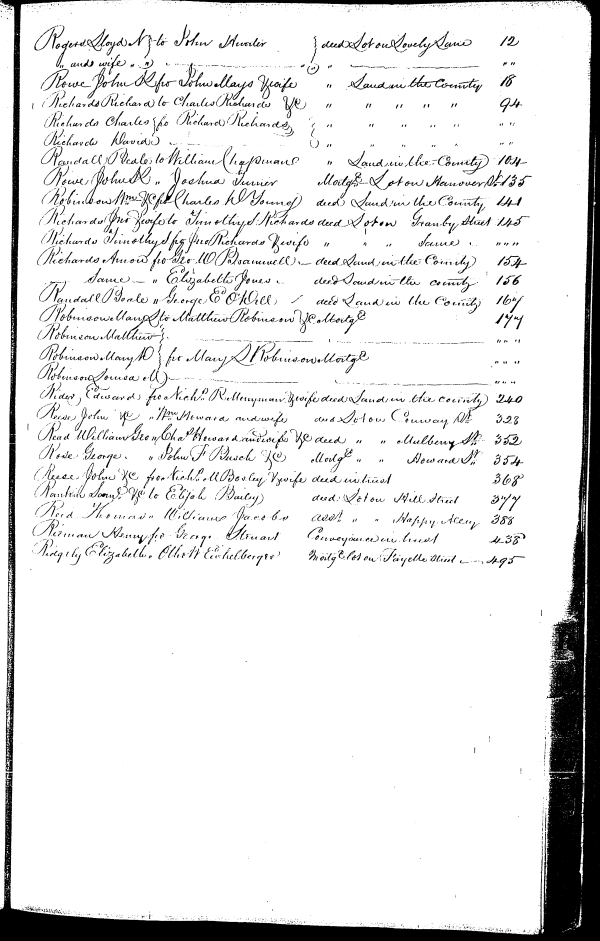 Rogers Lloyd N } to John Hunter } deed Lot on Lovely Lane 12
" and wife " " " " " "
Rowe John K fro John Mays & wife " Land in the County 18
Richards Richard to Charles Richards &C " " " " " 94
Richards Charles } fro Richard Richards } " " " " " " "
Richards David " " " " " " "
Randall Beale to William Chapman " Land in the County 104
Rowe John K " Joshua Turner Modgᵉ Lot on Hanover St 135
Robinson Wm &C fro Charles D Young deed Land in the County 141
Richards Jno & wife to Timothy S Richards deed Lot on Granby Street 145
Richards Timothy S fro Jno Richards & wife " " " Same " " "
Richards Amon fro Geo W Bramwell deed Land in the County 154
Same " Elizabeth Jones deed Land in the county 156
Randall Beale " George E O'Kill deed Land in the County 167
Robinson Mary L to Matthew Robinson &C Modgᵉ 177
Robinson Matthew } " " "
Robinson Mary A } fro Mary L Robinson Modgᵉ " " "
Robinson Louisa M } " " "
Rider Edward fro Nichˢ R Merryman & wife deed Land in the county 240
Reese John &C " Wm Howard and wife deed Lot on Conway St 328
Read William Geo " Chaˢ Howard and wife &C deed " " Mulberry St 352
Rose George " John F Busch &C Modgᵉ " " Howard St 354
Reese John &C fro Nichˢ M Bosley & wife deed in trust 368
Rankin Saml &C to Elijah Bailey deed Lot on Hill Street 377
Reid Thomas " William Jacobs assᵗ " " Happy Alley 388
Rieman Henry fro George Stewart Conveyance in trust 438
Ridgely Elizabeth " Otho W Eichelberger Modgᵉ Lot on Fayette Street 495